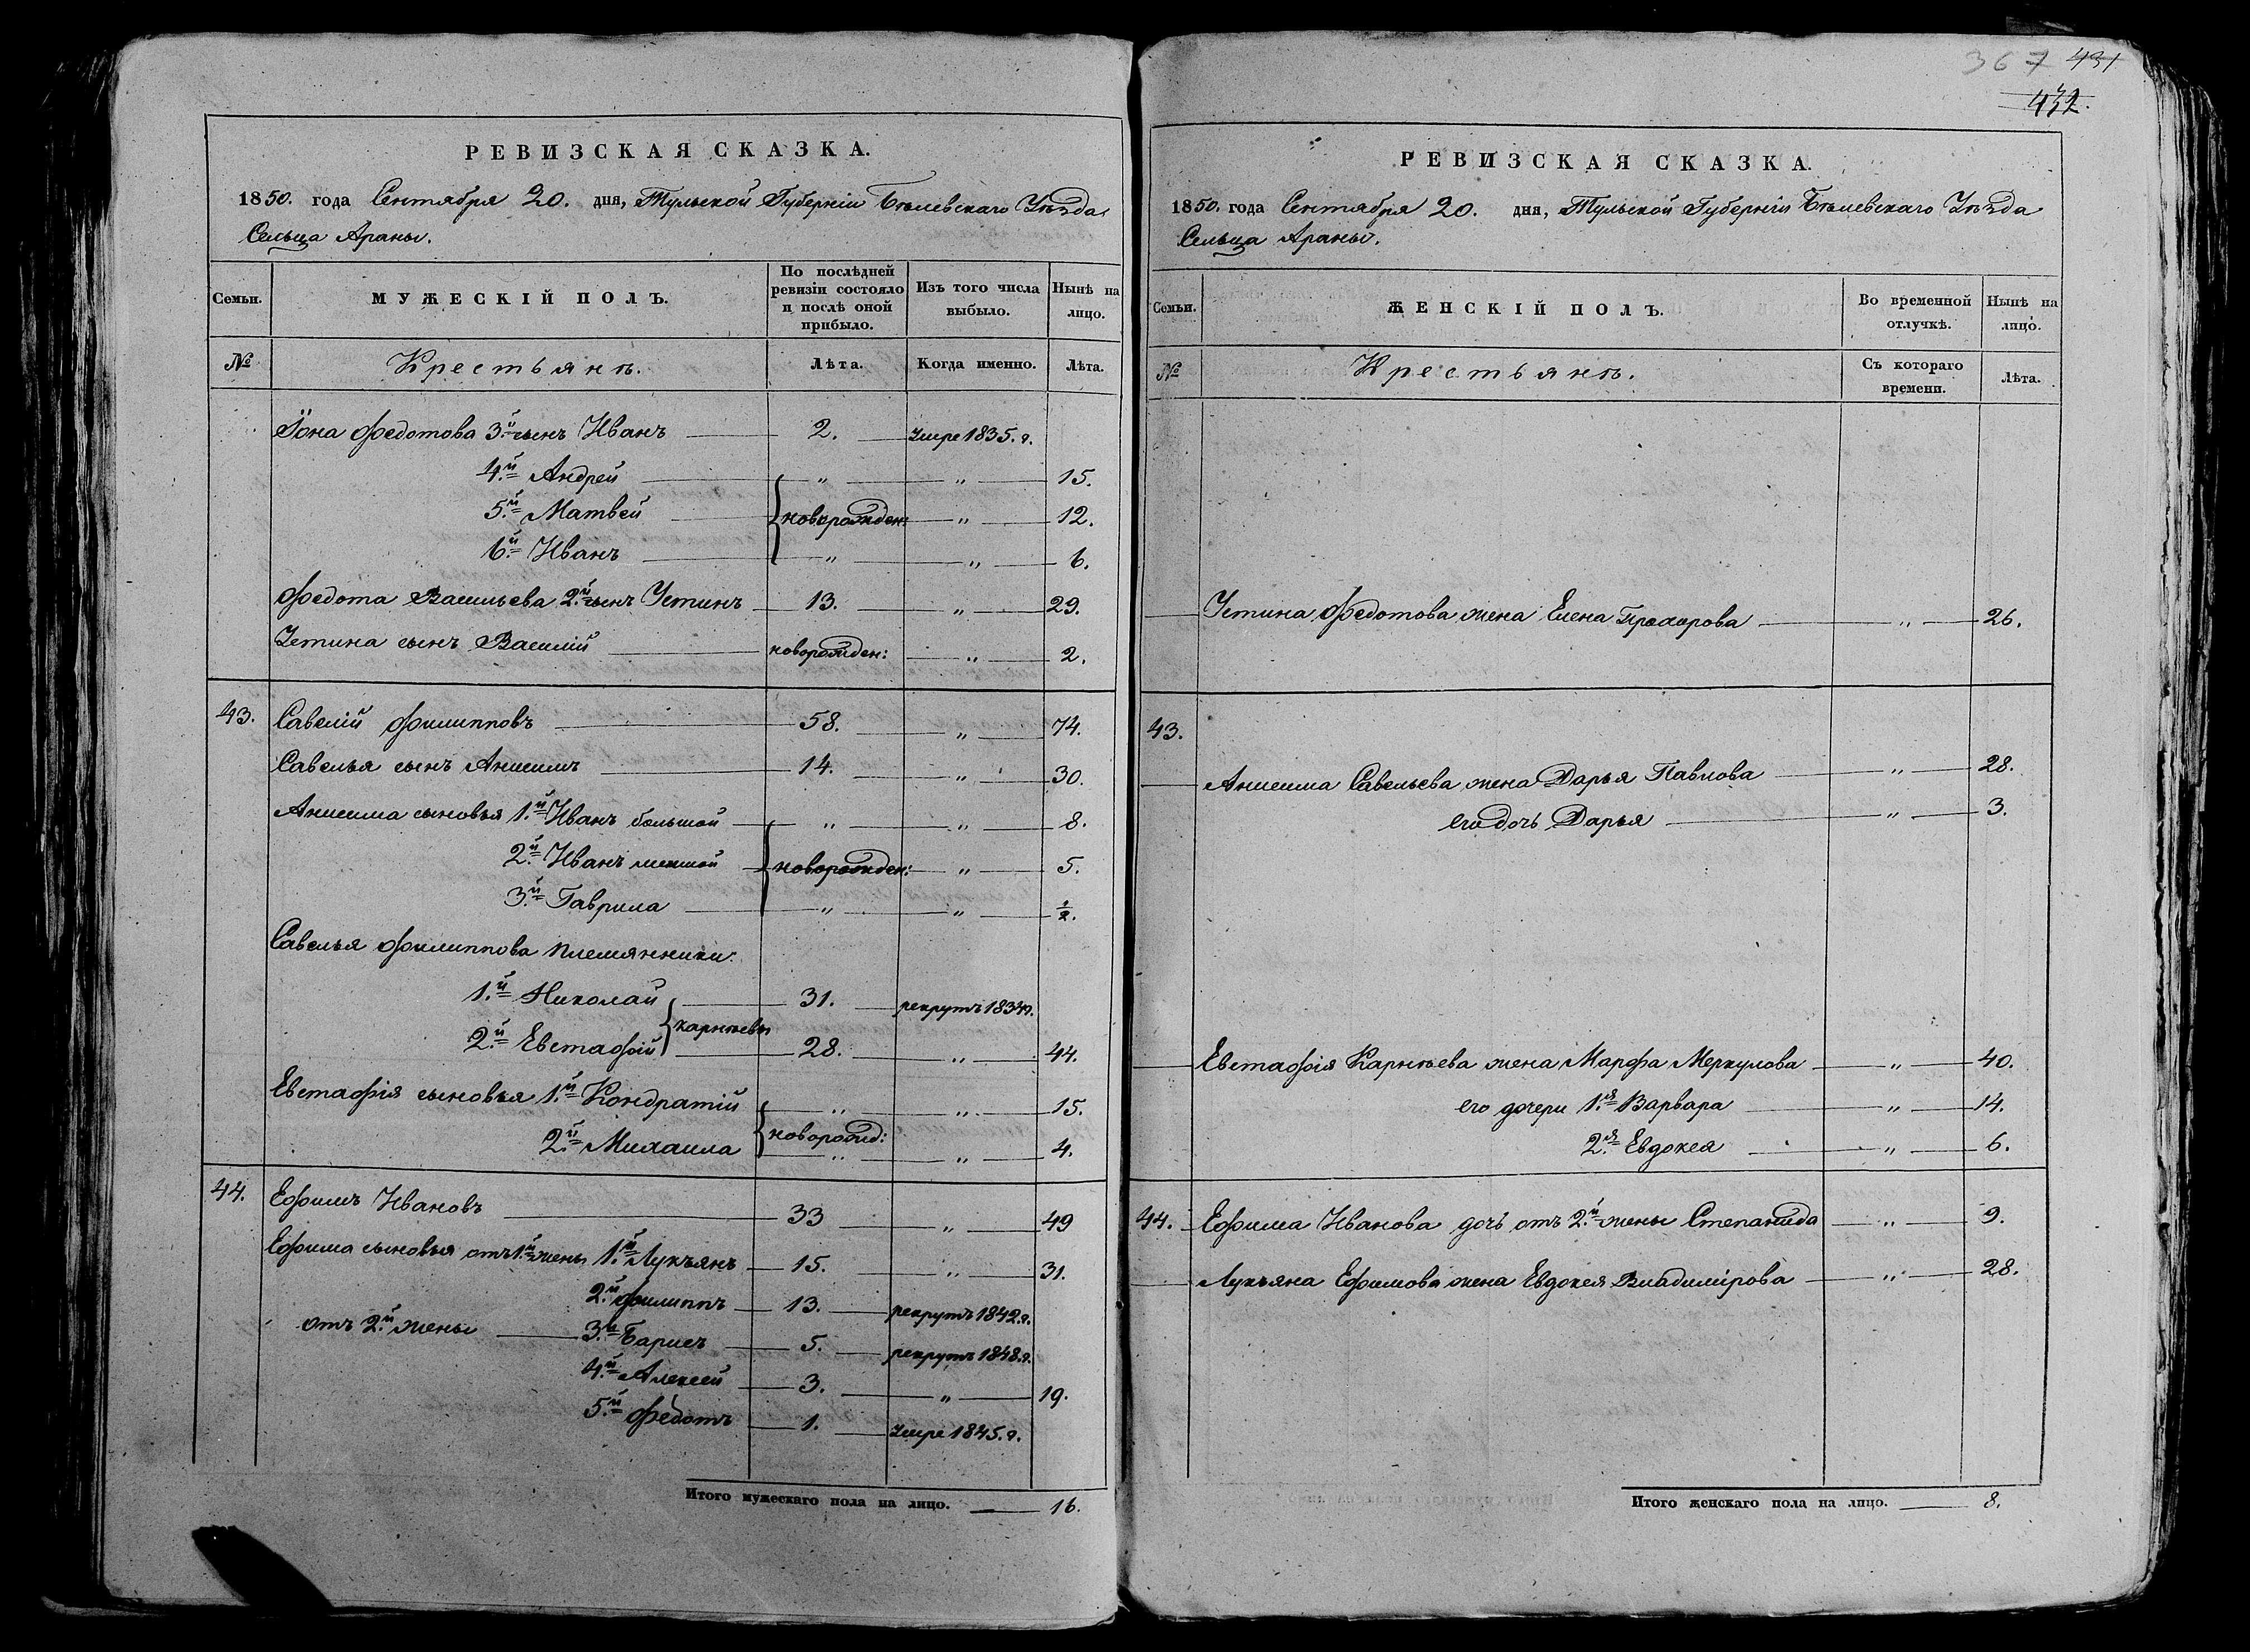 РЕВИЗСКАЯ СКАЗКА.
1850. года Сентября 20. дня, Тульской Губерніи Бѣлевскаго Уѣзда
Сельца Араны.
Семьи.
МУЖЕСКІЙ ПОЛЪ.
По послѣдней ревизіи состояло и послѣ оной прибыло.
Изъ того числа выбыло.
Нынѣ на лицо.
№
Крестьянъ.
Лѣта.
Когда именно.
Лѣта.
Іона Федотова 3.й сынъ Иванъ 2. Умре 1835. г.
4.й Андрей „ „ 15.
5.й Матвей новорожден: „ 12.
6.й Иванъ „ „ 6.
Федота Васильева 2.й сынъ Устинъ 13. „ 29.
Устина сынъ Василій новорожден: „ 2.
43. Савелій Филипповъ 58. „ 74.
Савелья сынъ Анисимъ 14. „ 30.
Анисима сыновья 1.й Иванъ большой „ „ 8.
2.й Иванъ меншой новорожден: „ 5.
3.й Гаврила „ „ ½.
Савелья Филиппова племянники:
1.й Николай 31. рекрутъ 1834г.
Карнѣевы
2.й Евстафій 28. „ 44.
Евстафія сыновья 1.й Кондратій „ „ 15.
новорожд:
2.й Михаила „ „ 4.
44. Ефимъ Ивановъ 33 „ 49
Ефима сыновья отъ 1.й жены 1.й Лукьянъ 15. „ 31.
2.й Филиппъ 13. рекрутъ 1842.г.
отъ 2.й жены 3.й Барисъ 5. рекрутъ 1848.г.
4.й Алексей 3. „ 19.
5.й Федотъ 1. Умре 1845.г.
Итого мужескаго пола на лицо. 16.
367 431
432.
РЕВИЗСКАЯ СКАЗКА.
1850. года Сентября 20. дня, Тульской Губерніи Бѣлевскаго Уѣзда
Сельца Араны.
Семьи.
ЖЕНСКІЙ ПОЛЪ.
Во временной отлучкѣ.
Нынѣ на лицо.
№
Крестьянъ.
Съ котораго времени.
Лѣта.
Устина Федотова жена Елена Прохорова „ 26.
43.
Анисима Савельева жена Дарья Павлова „ 28.
его дочь Дарья „ 3.
Евстафія Карнѣева жена Марфа Меркулова „ 40.
его дочери 1.я Варвара „ 14.
2.я Евдокея „ 6.
44. Ефима Иванова дочь отъ 2.й жены Степанида „ 9.
Лукьяна Ефимова жена Евдокея Владимірова „ 28.
Итого женскаго пола на лицо. 8.